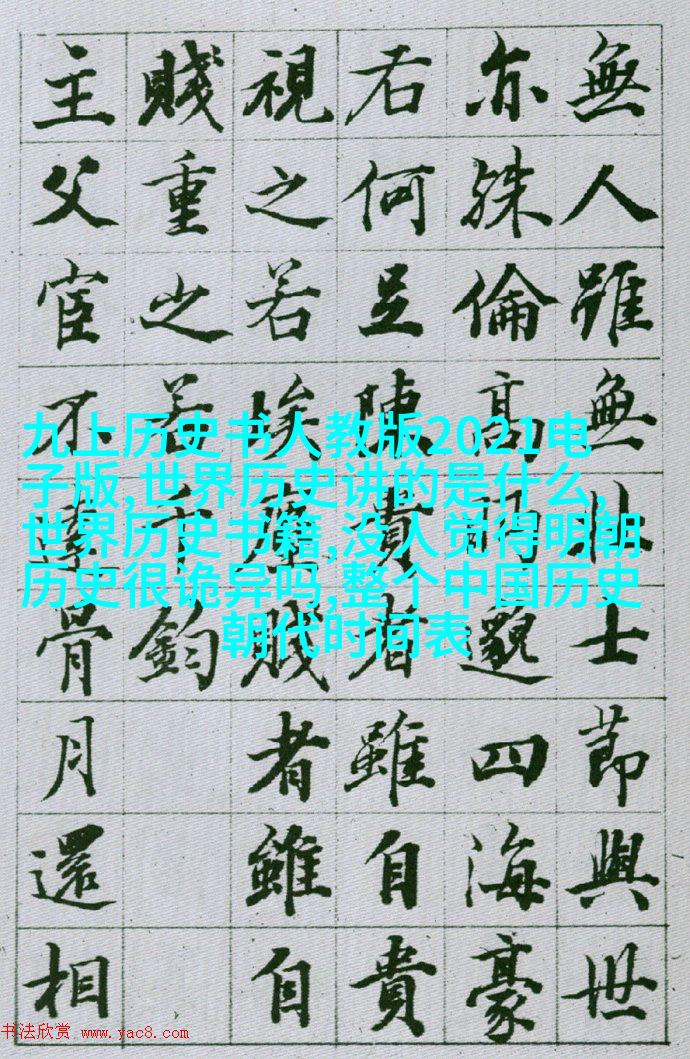 無人雖無壯士節與世
亦殊倫高眄邈四海豪
右何足陳貴者雖自貴
視之若埃塵賤者雖自
賤重之若千鈞
主父宦不達骨肉還相
九上历史书人教版2021电
子版,世界历史讲的是什么,
世界历史书籍,没人觉得明朝
历史很诡异吗,整个中国历史
朝代时间表
书法欣赏 www.yac8.com